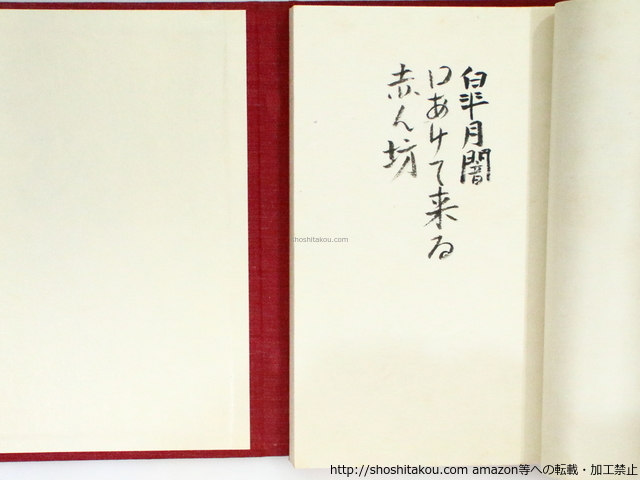 皐月闇
口あけて来る
赤ん坊
shoshitakou.com
http://shoshitakou.com amazon等への転載・加工禁止